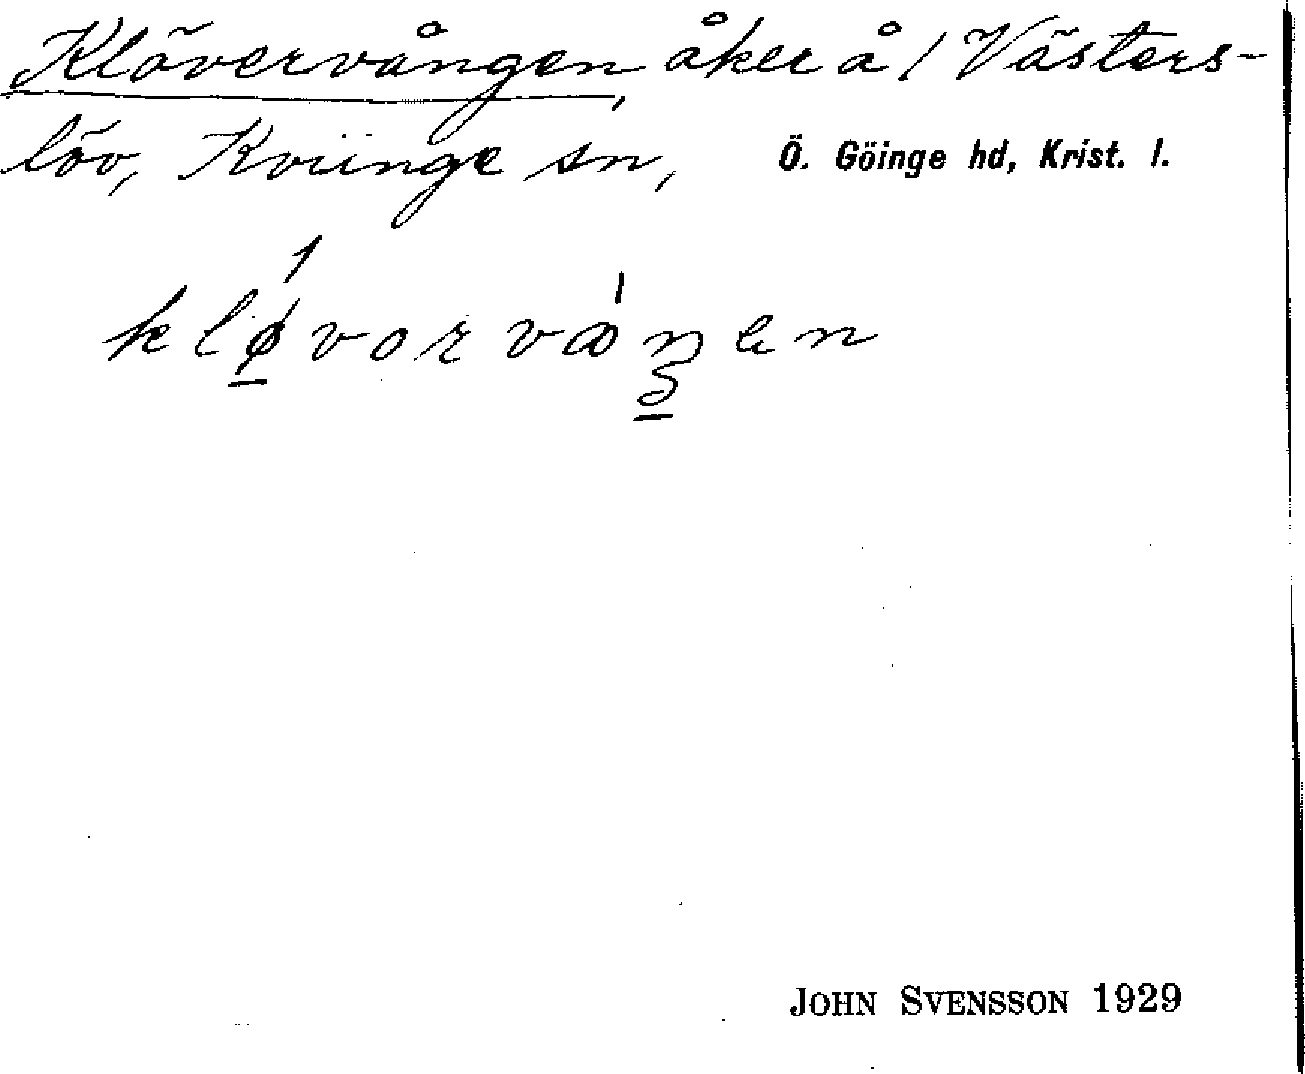 Klövervången, åker å 1 Västers-
löv, Kviinge sn, Ö. Göinge hd, Krist. l.
JOHN SVENSSON 1929